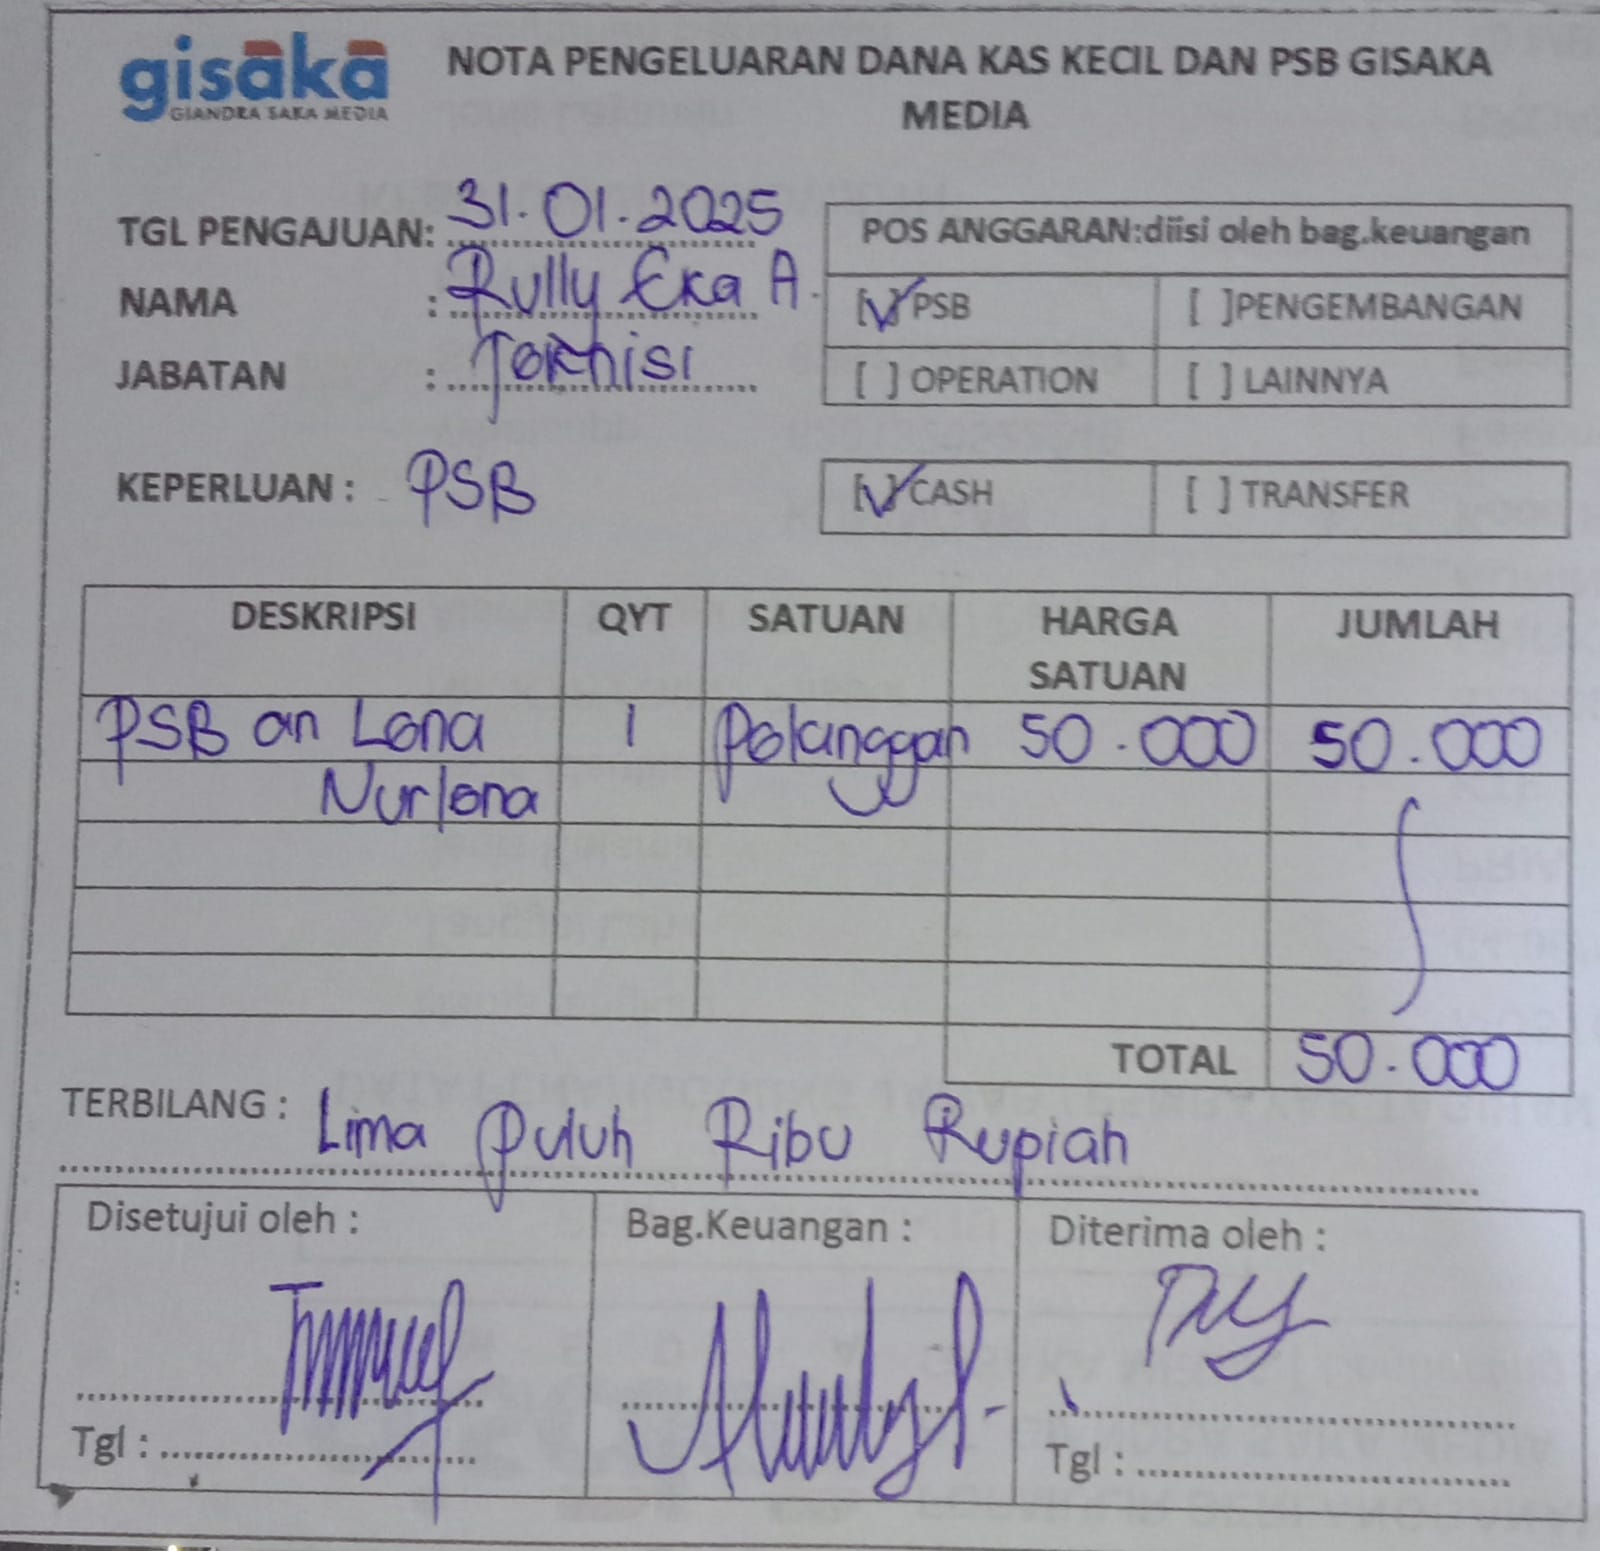 gisaka
GIANDRA SAKA MEDIA
NOTA PENGELUARAN DANA KAS KECIL DAN PSB GISAKA
MEDIA
TGL PENGAJUAN: 31.01.2025
NAMA : Rully Eka A.
JABATAN : Teknisi
POS ANGGARAN:diisi oleh bag.keuangan
[✓] PSB [ ]PENGEMBANGAN
[ ] OPERATION [ ] LAINNYA
KEPERLUAN : PSB
[✓] CASH [ ] TRANSFER
DESKRIPSI QYT SATUAN HARGA SATUAN JUMLAH
PSB an Lena 1 Pelanggan 50.000 50.000
Nurlena
TOTAL 50.000
TERBILANG : Lima Puluh Ribu Rupiah
Disetujui oleh : Bag.Keuangan : Diterima oleh :
Tgl : Tgl :